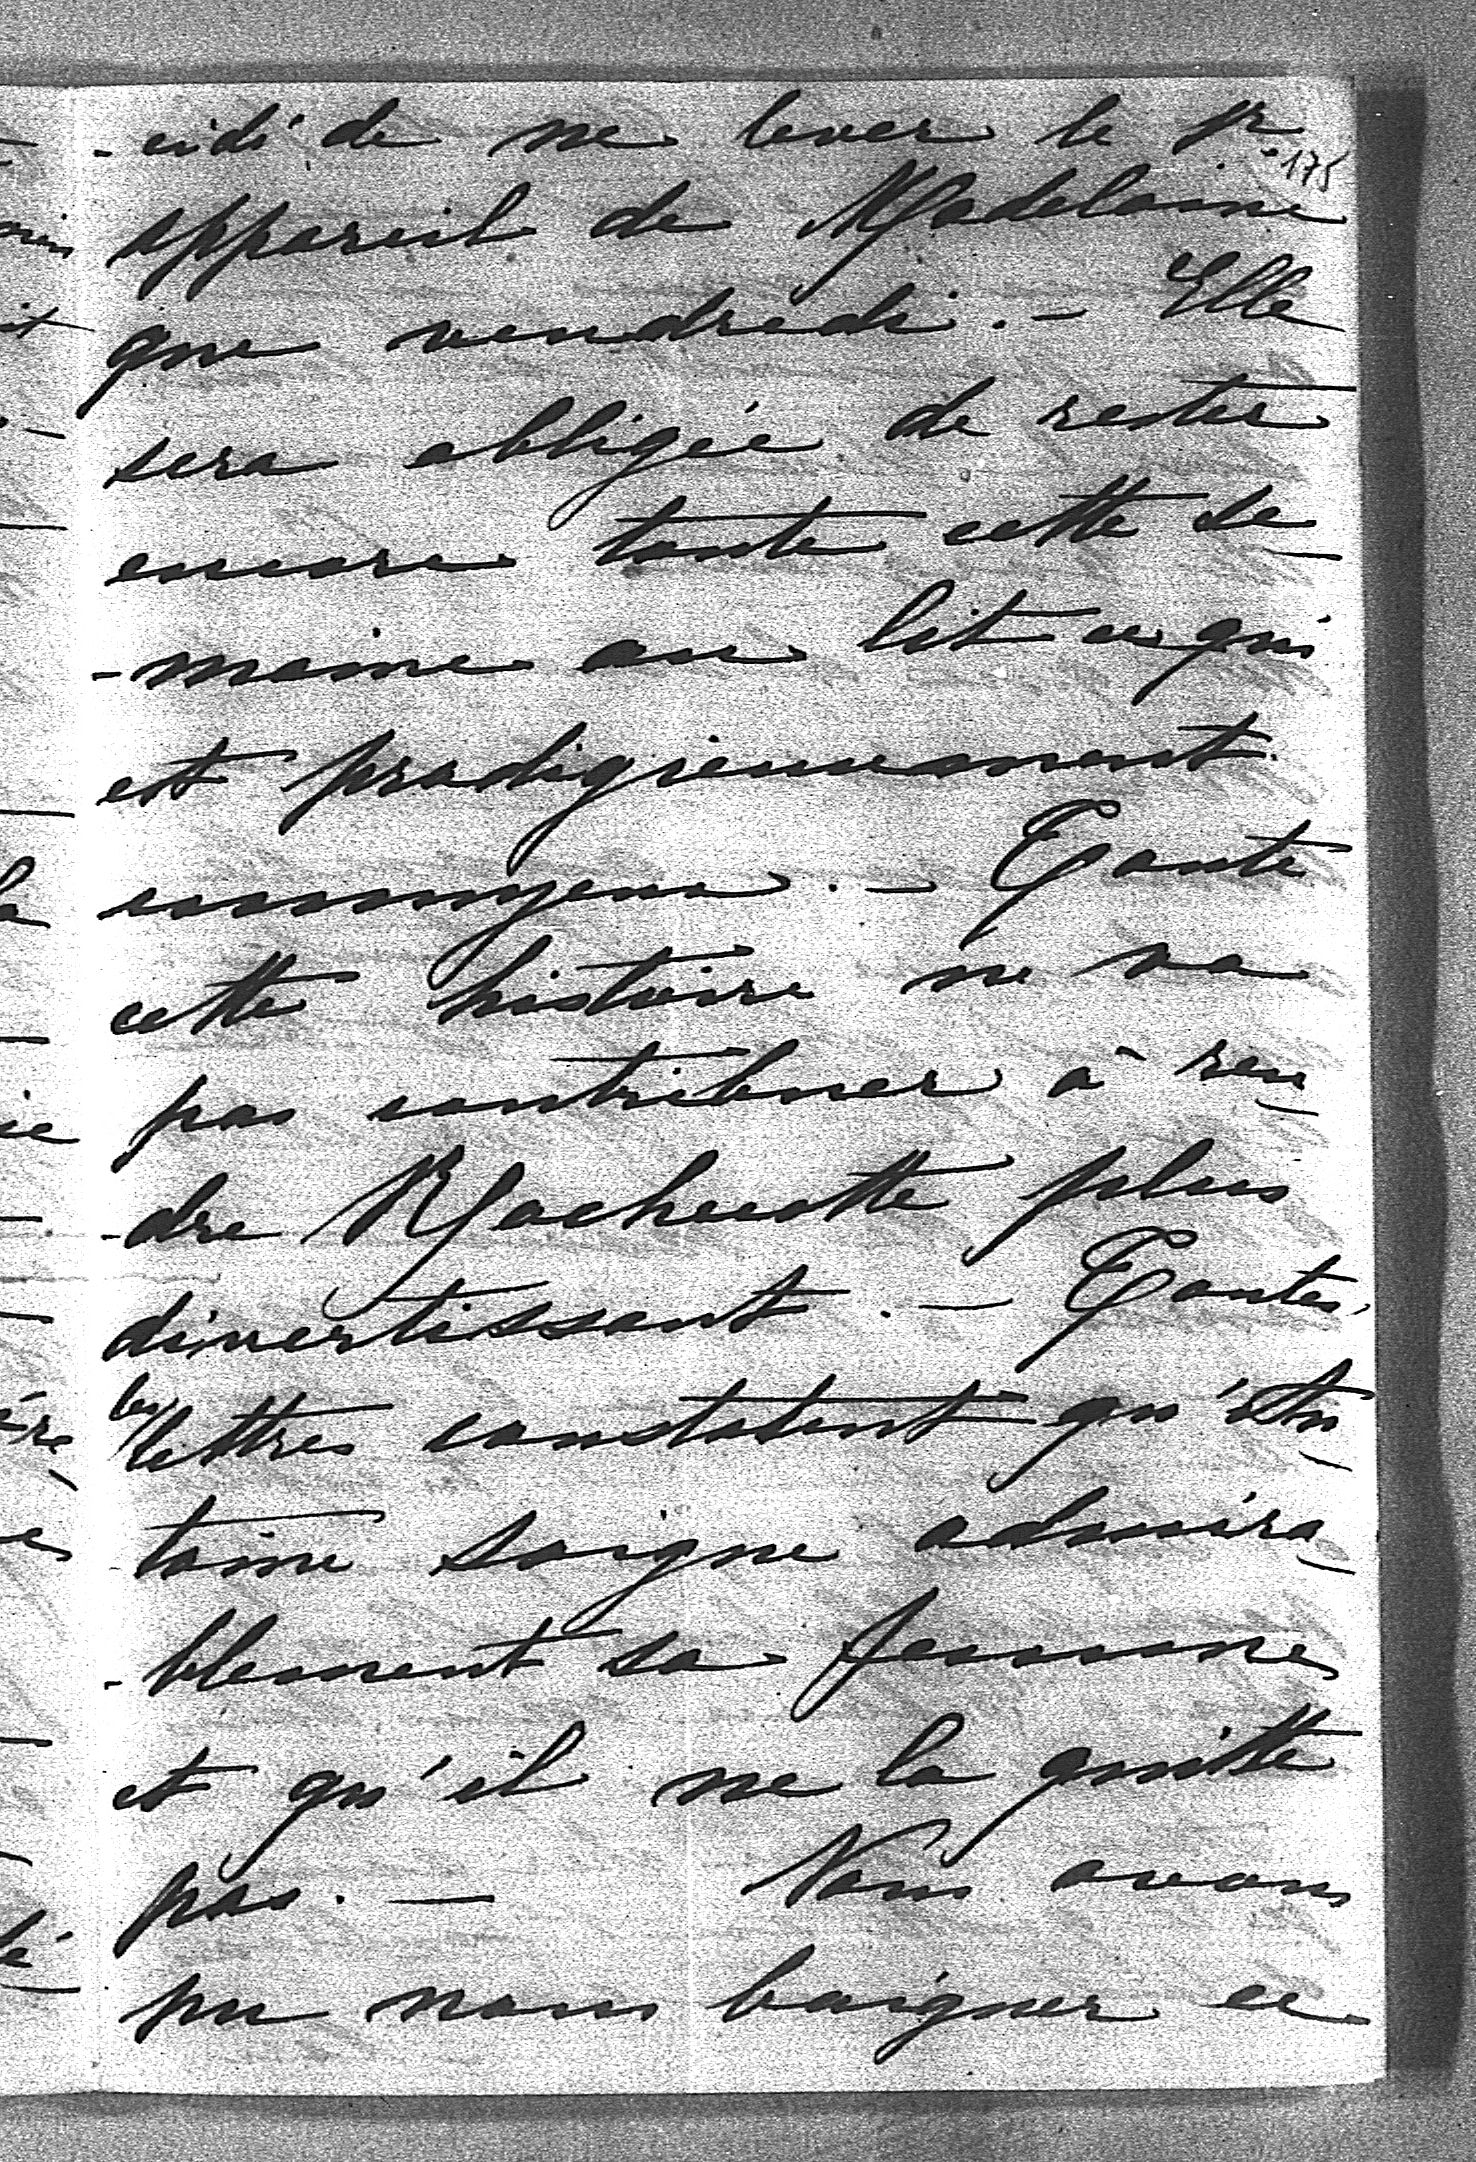 -cidé de ne lever le 1er
175
appareil de Madelaine
que vendredi. - Elle
sera obligée de rester
encore toute cette se-
-maine au lit ce qui
est prodigieusement
ennuyeux. - Toute
cette histoire ne va
pas contribuer à ren-
-dre Rochecotte plus
divertissant. - Toutes
les lettres constatent qu'An-
-toine soigne admira-
-blement sa femme
et qu'il ne la quitte
pas. - Nous avons
pu nous baigner ce